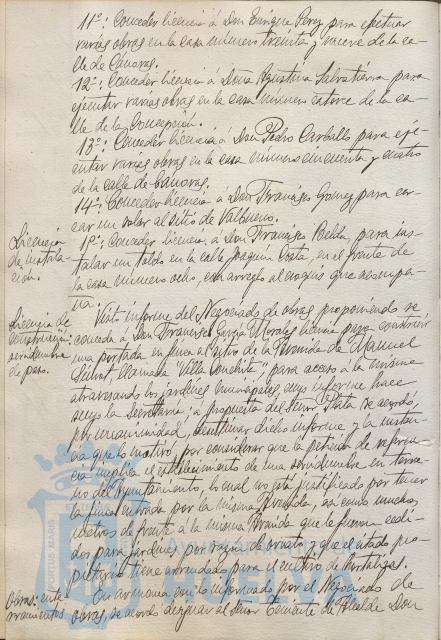 11º: Conceder licencia á Don Enrique Perez para efectuar
varias obras en la casa número treinta y nueve de la ca-
lle de Canovas.
12º: Conceder licencia á Doña Agustina Salvatierra para
ejecutar varias obras en la casa número catorce de la ca-
lle de la Concepción.
13º: Conceder licencia á Don Pedro Carballo para eje-
cutar varias obras en la casa número cincuenta y cuatro
de la calle de Canovas.
14º: Conceder licencia á Don Francisco Gomez para cer-
car un solar al sitio de Valbueno.
Licencia
de instala-
ción.
1º: Conceder licencia á Don Francisco para ins-
talar un toldo en la calle Joaquin Costa, en el frente de
la casa número ocho, con arreglo al croquis que acompa-
ña.
Licencia de
construcción
servidumbre
de paso.
Visto informe del Negociado de obras proponiendo se
conceda á Don Francisco García Morales licencia para construir
una portada en finca al sitio de la Avenida de Manuel
Siurot, llamada "Villa Conchita", para acceso á la misma
atravesando los jardines municipales, cuyo informe hace
suyo la Secretaría; a propuesta del Señor Plata se acordó,
por unanimidad, desestimar dicho informe y la instan-
cia que lo motivó, por considerar que la petición de referen-
cia implica el establecimiento de una servidumbre en terre-
no del Ayuntamiento, lo cual no está justificado por tener
la finca entrada por la misma Avenida, así como muchos
metros de frente á la misma Avenida que le fueron cedi-
dos para jardines por razón de ornato, y que el citado pe-
ticionario tiene arrendado para el cultivo de hortalizas.
Obras:
En armonía con lo informado por el Negociado de
obras, se acordó designar al Señor Teniente de Alcalde Don
PORTUS MARIS
Ayuntamiento de
HUELVA